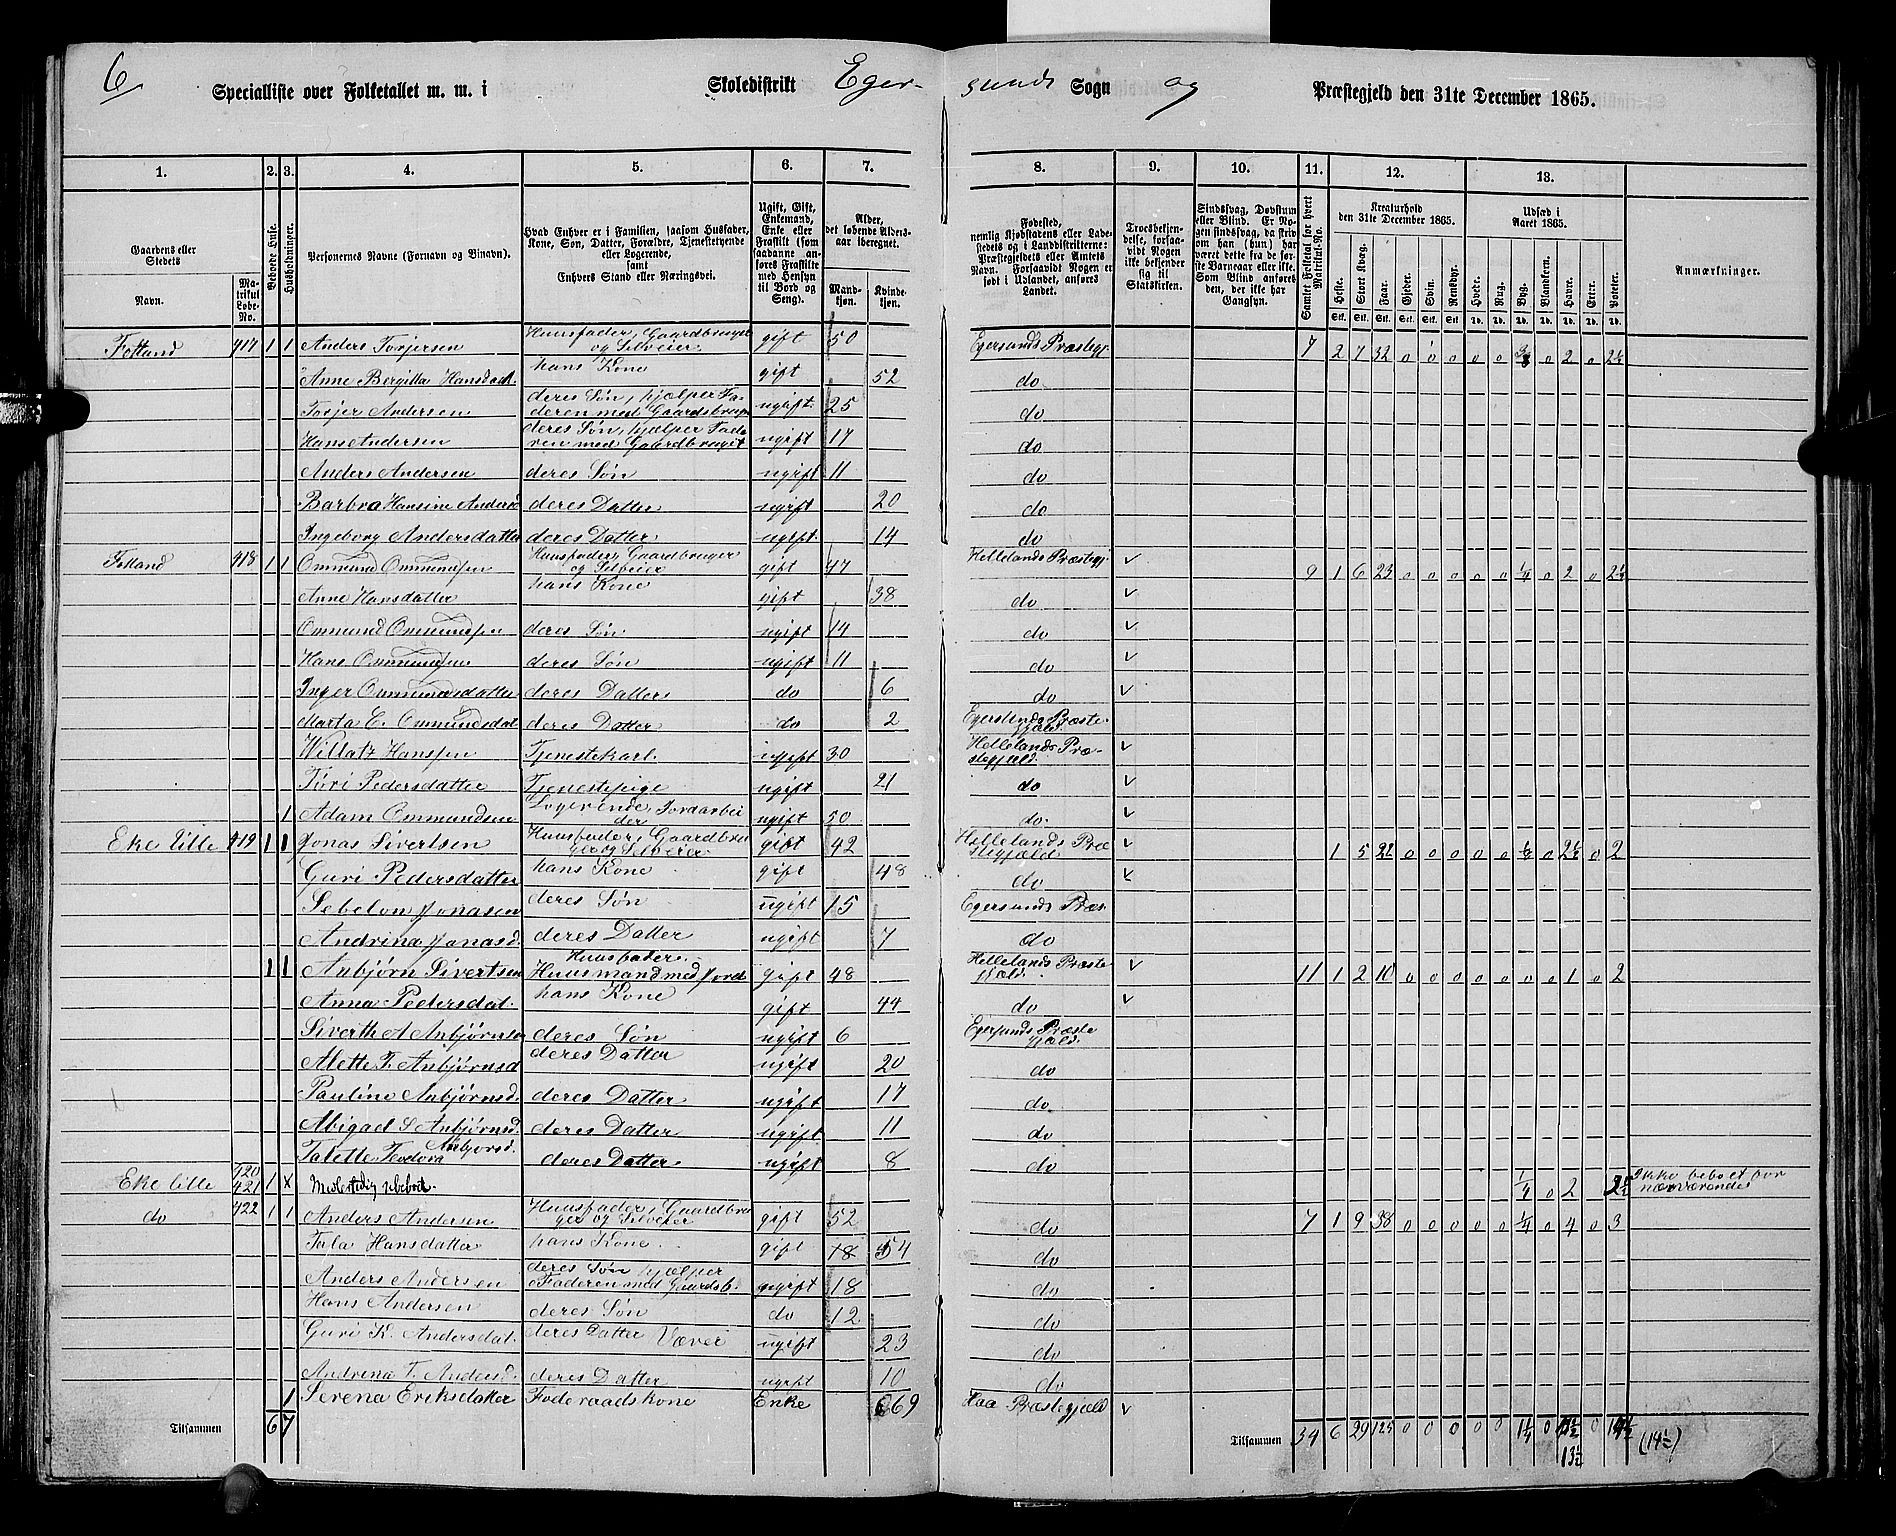 6 Specialliste over Folketallet m. m. i Skoledistrikt Eger- sunds Sogn og Præstegjeld den 31te December 1865.
1. 2. 3. 4. 5. 6. 7. 8. 9. 10. 11. 12. 13.
Gaardens eller Stedets
Navn. Matrikul Løbe-No.
Beboede Huse.
Husholdninger.
Personernes Navne (Fornavn og Binavn).
Hvad Enhver er i Familien, saasom Husfader, Kone, Søn, Datter, Forældre, Tjenestetyende eller Logerende, samt Enhvers Stand eller Næringsvei.
Ugift, Gift, Enkemand, Enke eller Fraskilt (som saadanne anføres Fraskilte med Hensyn til Bord og Seng).
Alder, det løbende Alders-aar iberegnet.
Mandkjøn. Kvindekjøn.
Fødested, nemlig Kjøbstadens eller Ladestedets og i Landdistrikterne: Præstegjeldets eller Amtets Navn. Forsaavidt Nogen er født i Udlandet, anføres Landet.
Troesbekjendelse, forsaavidt Nogen ikke bekjender sig til Statskirken.
Sindssvag, Døvstum eller Blind. Er Nogen sindssvag, da skrives om han (hun) har været dette fra første Barneaar eller ikke. Som Blind anføres den, der ikke har Gangsyn.
Samlet Folketal for hvert Matrikul-No.
Kreaturhold den 31te December 1865.
Heste. Stort Kvæg. Faar. Gjeder. Svin. Rensdyr.
Stk. Stk. Stk. Stk. Stk. Stk.
Udsæd i Aaret 1865.
Hvede. Rug. Byg. Blandkorn. Havre. Erter. Poteter.
Td. Td. Td. Td. Td. Td. Td.
Anmærkninger.
Fotland 417 1 1 Anders Torjersen Huusfader, Gaardbruger og Selveier gift 50 Egersunds Præstegj. 7 2 7 32 0 0 0 0 0 0 2 0
Anne Bergitta Hansdatt. hans Kone gift 52 do
Torjer Andersen deres Søn, hjælper Faderen med Gaardsbruget ugift 25 do
Hans Andersen deres Søn, hjælper Faderen med Gaardbruget ugift 17 do
Anders Andersen deres Søn ugift 11 do
Barbra Hansine Andersd deres Datter ugift 20 do
Ingeborg Andersdatter deres Datter ugift 14 do
Fotland 418 1 1 Ommund Ommundsen Huusfader, Gaardbruger og Selveier gift 47 Hellelands Præstegj. ✓ 9 1 6 23 0 0 0 0 0 1/4 0 2 0 2 1/4
Anne Hansdatter hans Kone gift 38 do ✓
Ommund Ommundsen deres Søn ugift 14 do ✓
Hans Ommundsen deres Søn ugift 11 do ✓
Inger Ommundsdatter deres Datter do 6 do ✓
Marta E. Ommundsdat. deres Datter do 2 Egersunds Præstegjæld.
Willatz Hanssen Tjenestekarl. ugift 30 Hellelands Præstegjæld. ✓
Turi Pedersdatter Tjenestepige ugift 21 do ✓
1 Adam Ommundsen Logerende, Jordarbeider ugift 50 do. ✓
Eke lille 419 1 1 Jonas Sivertsen Huusfader, Gaardbruger og Selveier gift 42 Hellelands Præstegjæld ✓ 1 5 22 0 0 0 0 0 0 2 1/2 0 2
Guri Pedersdatter hans Kone gift 48 do ✓
Sebelon Jonasen deres Søn ugift 15 Egersunds Præs.
Andrina Jonasd. deres Datter ugift 7 do
1 1 Anbjørn Sivertsen Huusfader. Huusmand med Jord gift 48 Hellelands Præstegjæld. ✓ 11 1 2 10 0 0 0 0 0 0 0 1 0 2
Anna Pedersdat. hans Kone gift 44 do ✓
Siverth A Anbjørnsen deres Søn ugift 6 Egersunds Præstegjæld.
Alette T. Anbjørnsd deres Datter ugift 20 do
Pauline Anbjørnsd. deres Datter ugift 17 do
Abigael S Anbjørnsd. deres Datter ugift 11 do
Talette Teodora Anbjorsd. deres Datter ugift 8 do
Eke lille 420 421 1 x Midlertidig ubeboet. 1/4 0 2 2 1/2 Ikke beboet for nærværende
do 422 1 1 Anders Andersen Huusfader, Gaardbruger og Selveier gift 52 do 7 1 9 38 0 0 0 0 0 1/4 0 4 0 3
Tala Hansdatter hans Kone gift 18 54 do
Anders Andersen deres Søn hjælper Faderen med Gaardsb. ugift 18 do
Hans Andersen deres Søn do 12 do
Guri K. Andersdat. deres Datter Væver ugift 23 do
Andrena T. Andersd. deres Datter ugift 10 do
1 Serena Eriksdatter Føderaadskone Enke 69 Haa Præstegjæld ✓
Tilsammen 6 7 Tilsammen 34 6 29 125 0 0 0 0 0 1 1/4 0 0 14 1/2 (14 1/2)
13 1/2